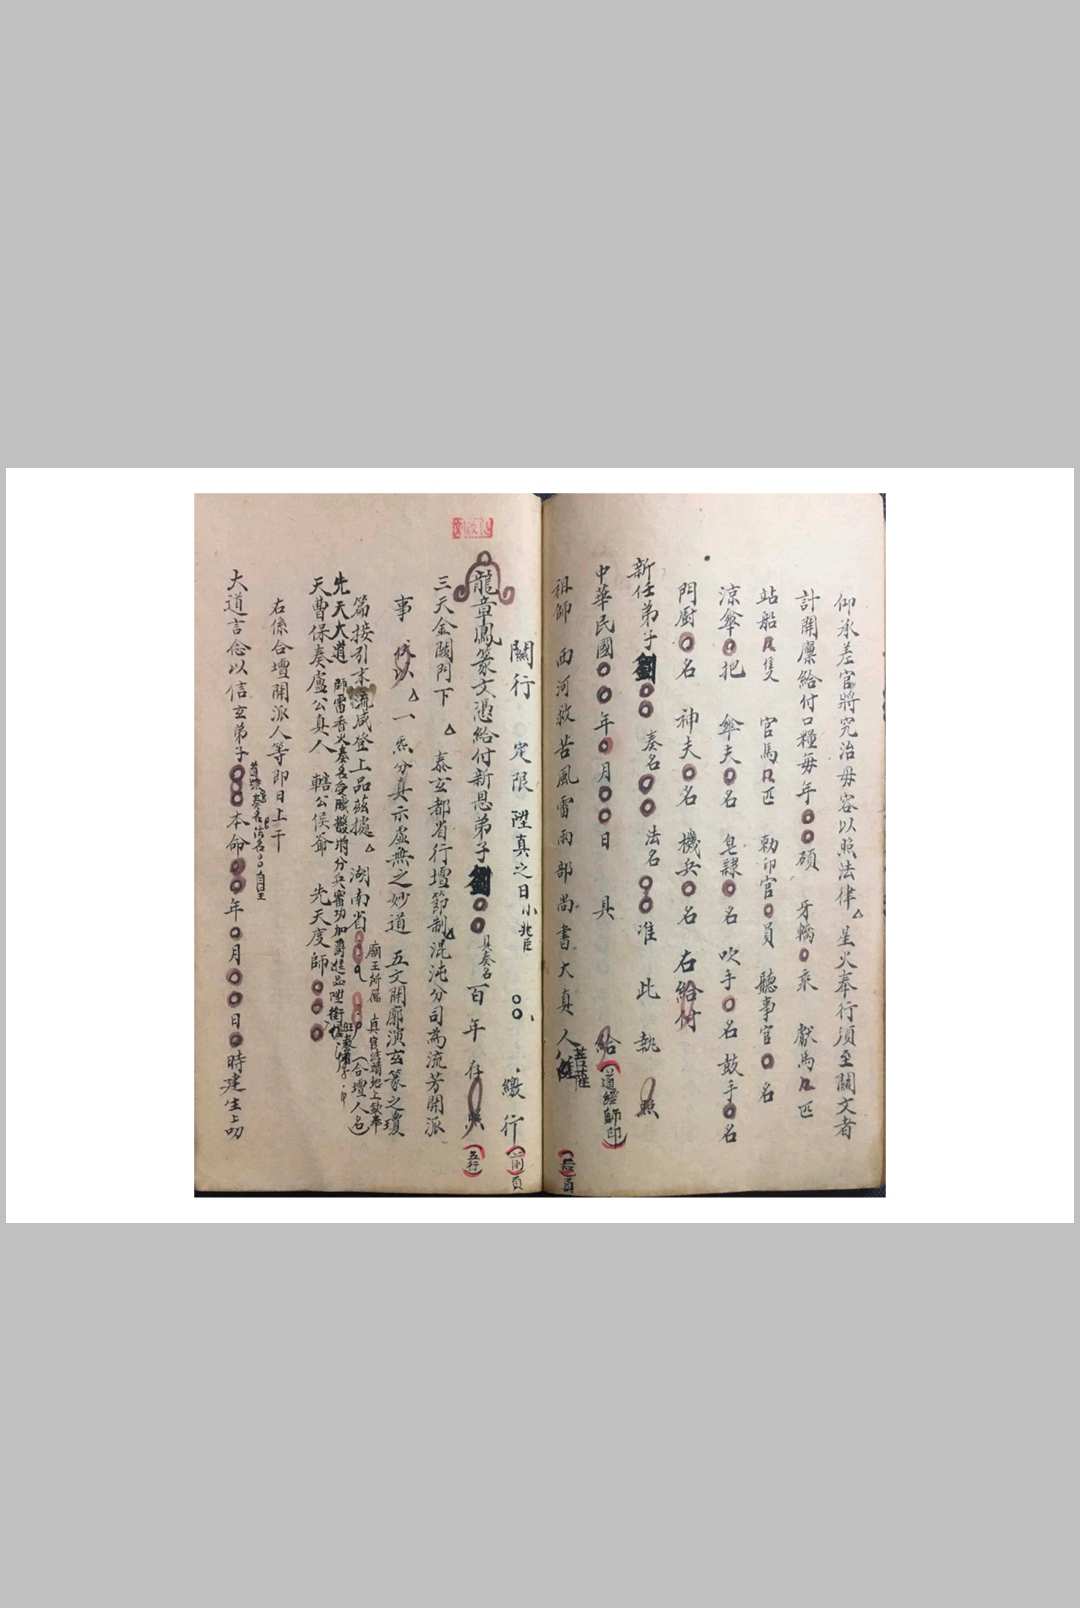 仰承差官將究治毋容以照法律△星火奉行須至關文者
計開廩給付口糧每年○○碩 牙轎○乘 獻馬几匹
站船几隻 官馬几匹 勅印官○員 聽事官○名
涼傘○把 傘夫○名 皂隸○名 吹手○名 鼓手○名
門廚○名 神夫○名 機兵○名 右給付
新任弟子劉○○ 奏名○○ 法名○○准 此 執 照
中華民國○○年○月○○日 具 給(道經師印)
祖師 西河救苦風雷雨部尚書大真人 菩薩
關行 定限 陞真之日 小兆臣 ○○ 繳行 頁
龍章鳳篆文憑給付新恩弟子劉○○ 具奏名 百年 存照(五行)
三天金闕門下△ 泰玄都省行壇節制△混沌分司為流芳開派
事 伏以△一炁分真示虛無之妙道 五文開廓演玄篆之瓊
篇接引末流咸登上品茲據△ 湖南省○○ 廟王所屬 真官詰靖地上欽奉(合壇人名)
先天大道 師雷香火奏名受職撥將分兵雷功加爵進品陞銜
天曹保奏盧公真人 轄公侯爺 先天度師○○○
右係合壇開派人等即日上干
大道言念以信玄弟子○○○本命○○年○月○○日○時建生上叨